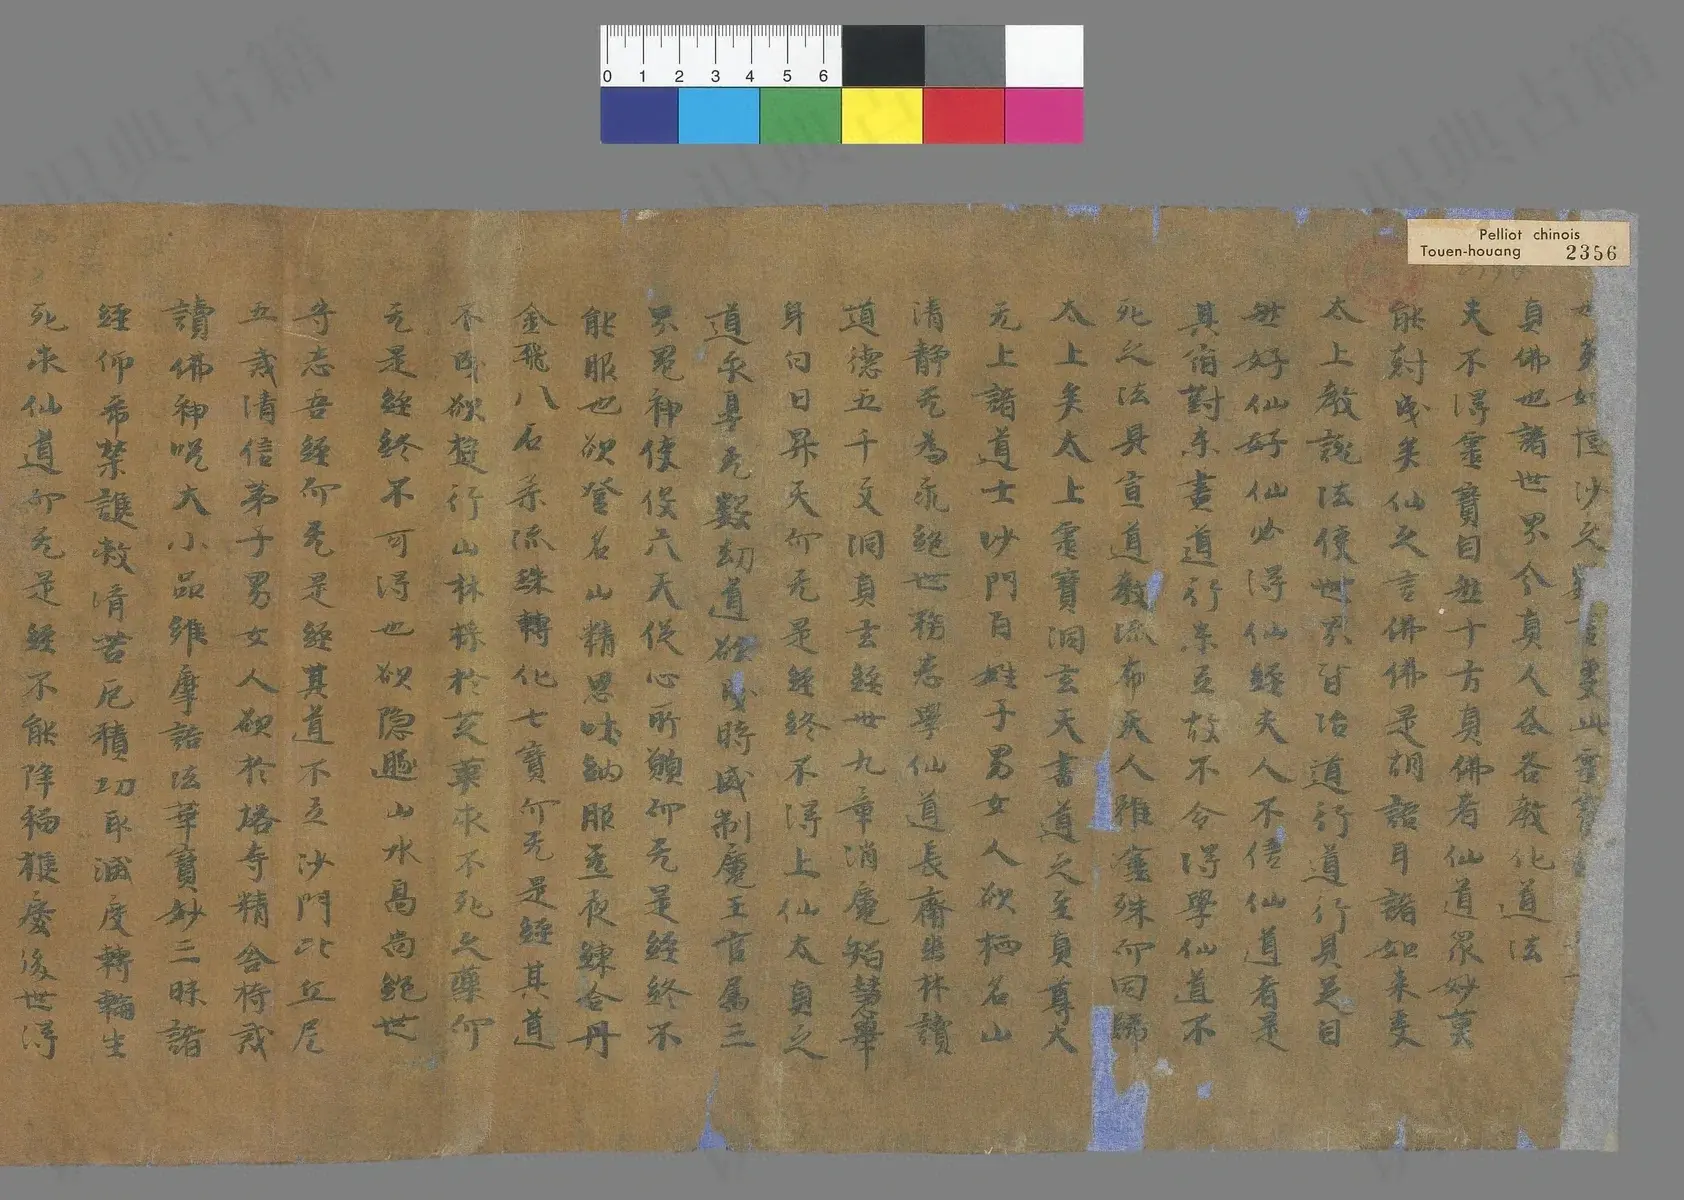 0 1 2 3 4 5 6
Pelliot chinois
Touen-houang 2356
沙之
真佛也諸世界令真人各各教化道法
夫不得靈寶自然十方真佛者仙道眾妙莫
能對成矣仙之言佛佛是胡語耳諸如来受
太上教説法使世界皆治道行道行具足自
無好仙好仙必得仙經夫人不信仙道者是
其宿對未盡道行未立故不令得學仙道不
死之法具宣道教流布天人雖塗殊而同歸
太上矣太上靈寶洞玄天書道之至真尊大
无上諸道士沙門百姓子男女人欲栖名山
清静无為永絶世務志學仙道長齋幽林讀
道德五千文洞真玄經卅九章消魔智慧舉
身白日昇天而无是經終不得上仙太真之
道永享无數劫道欲成時威制魔王官属三
界鬼神使役六天従心所願而无是經終不
能服也欲登名山精思味納服炁夜鍊合丹
金飛八石柔流珠轉化七寳而无是經其道
不成欲遊行山林採於芝藥求不死之藥而
无是經終不可得也欲隐遁山水高尚絶世
守志吾經而无是經其道不立沙門比丘尼
五戒清信弟子男女人欲於塔寺精舍持戒
讀佛神呪大小品維摩詰法華寶妙三昧諸
經仰希禁護救濟苦厄積功取滅度轉輪生
死求仙道而无是經不能降福獲慶後世得
識典古籍